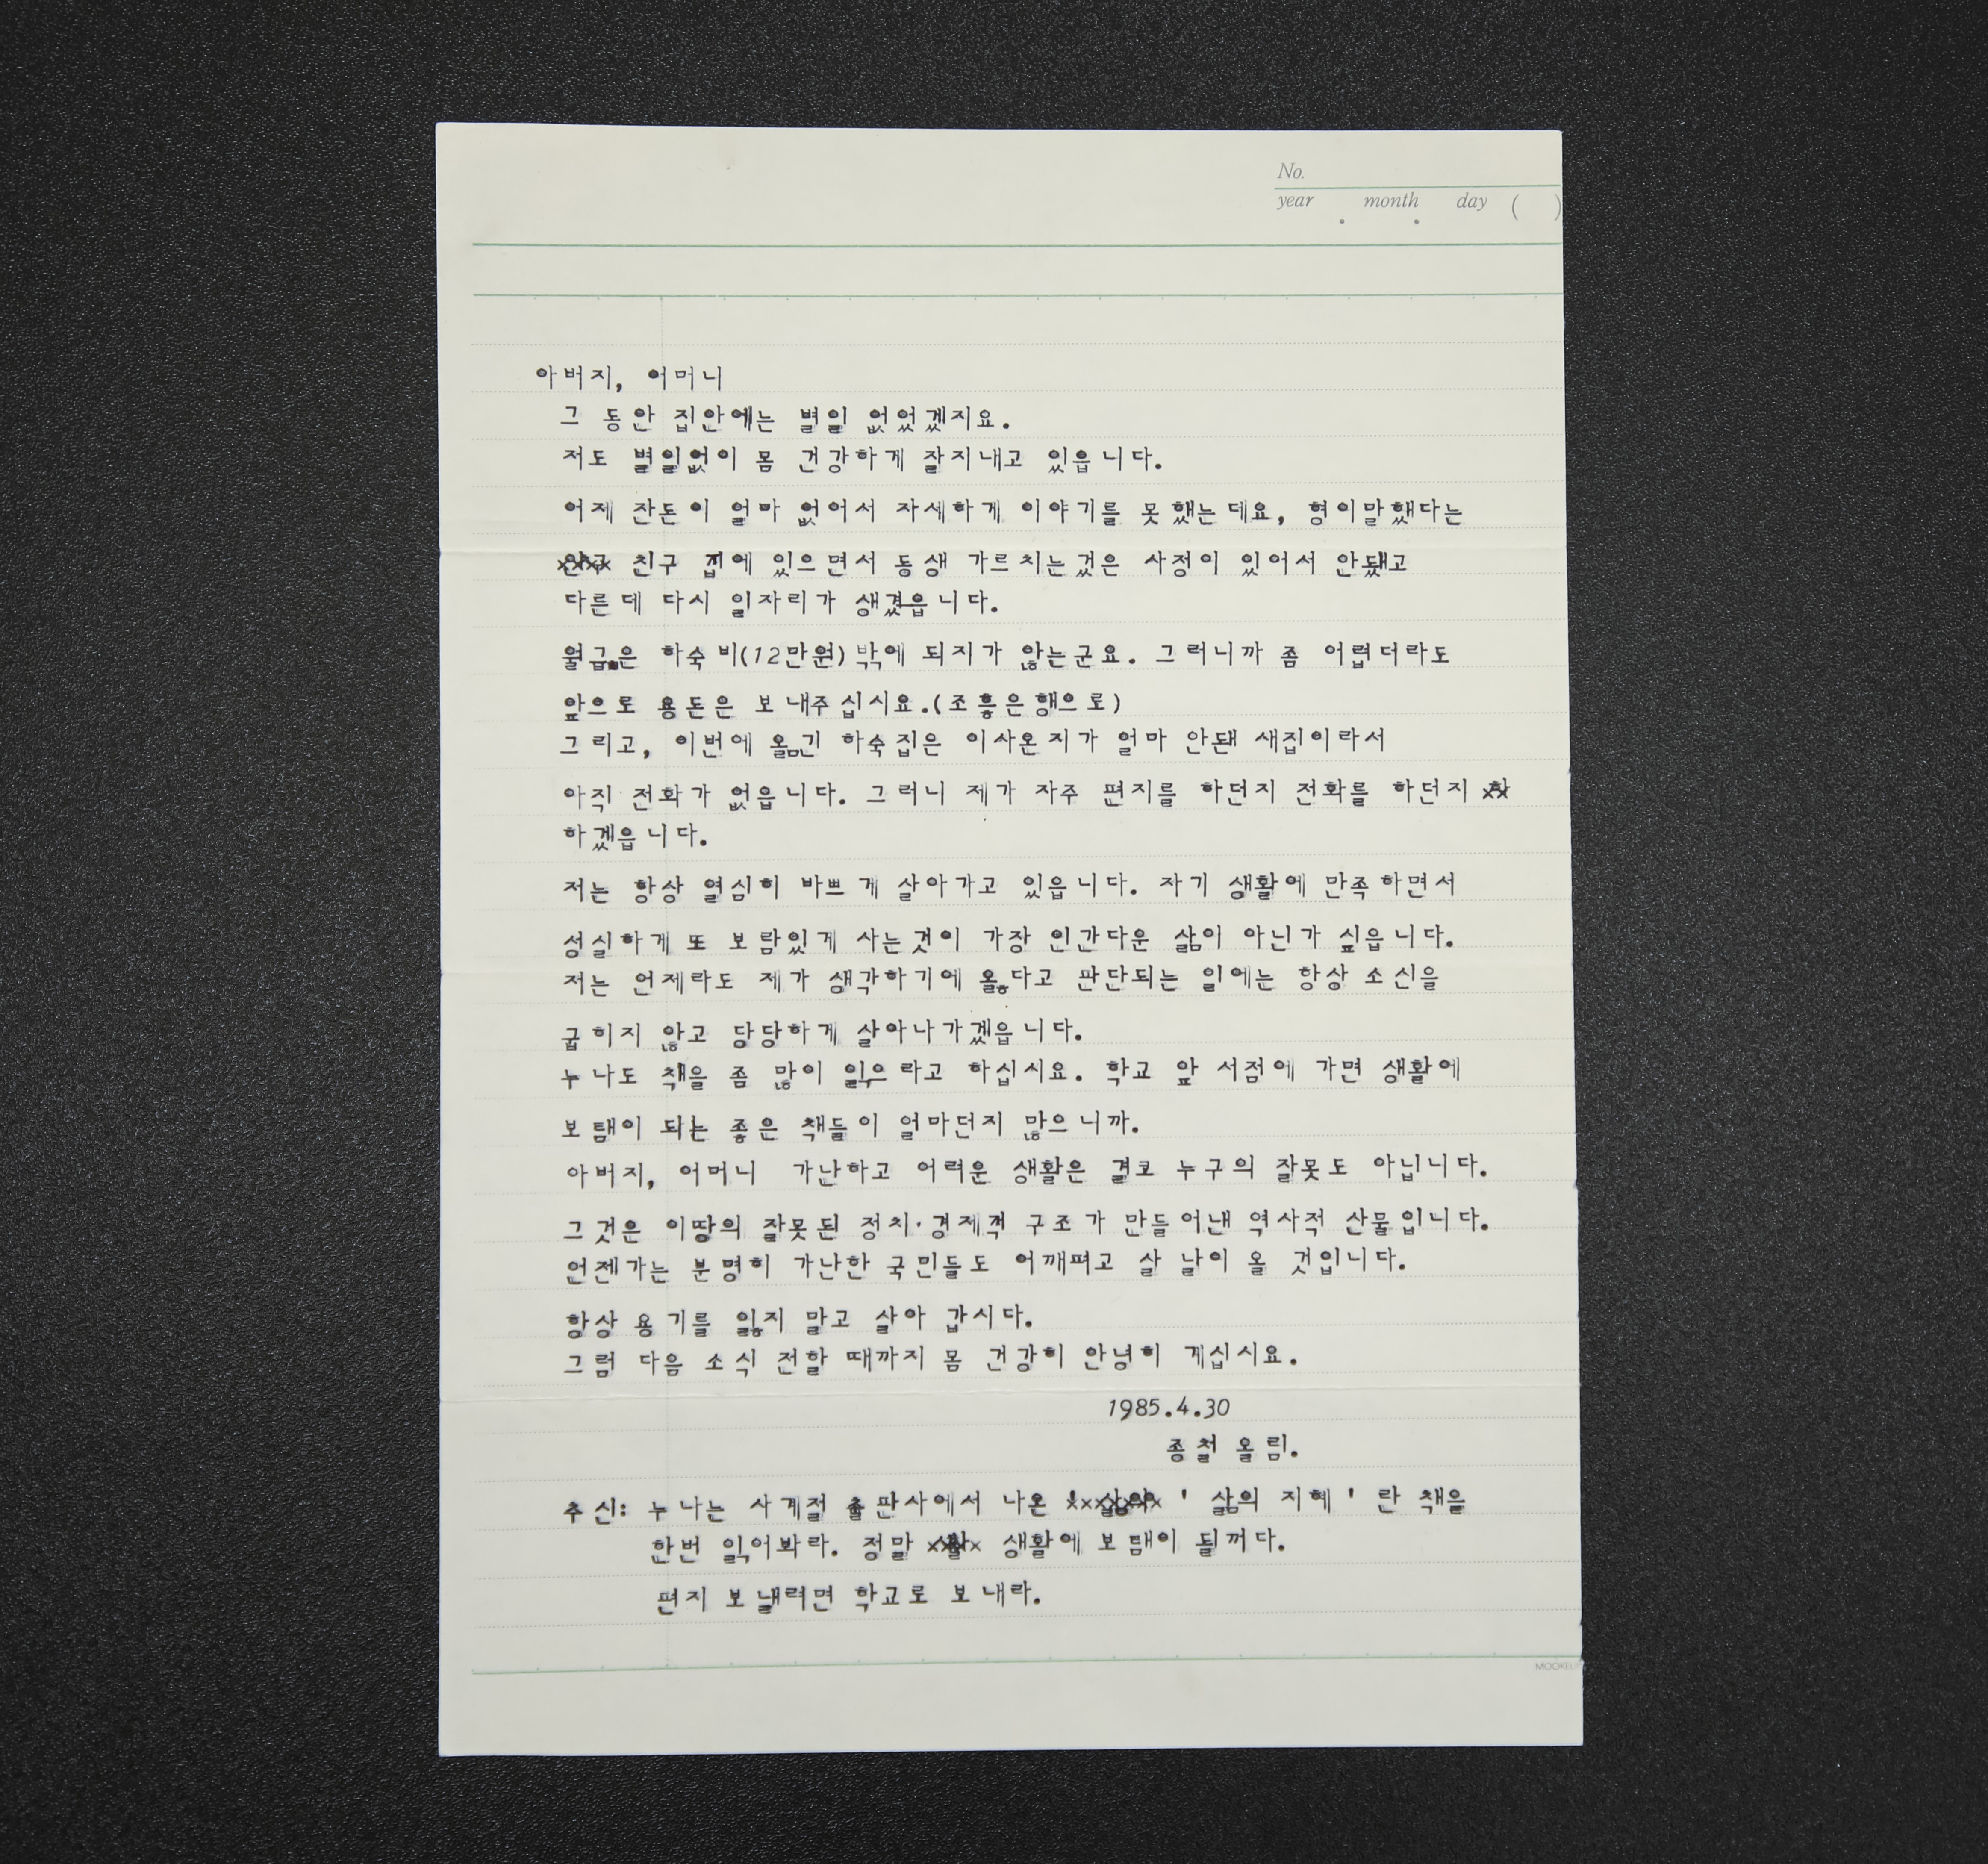 No.
year . month . day ( )
아버지, 어머니
그 동안 집안에는 별일 없었겠지요.
저도 별일없이 몸 건강하게 잘지내고 있읍니다.
어제 잔돈이 얼마 없어서 자세하게 이야기를 못했는데요, 형이말했다는
친구 집에 있으면서 동생 가르치는것은 사정이 있어서 안됐고
다른데 다시 일자리가 생겼읍니다.
월급은 하숙비(12만원)밖에 되지가 않는군요. 그러니까 좀 어렵더라도
앞으로 용돈은 보내주십시요.(조흥은행으로)
그리고, 이번에 옮긴 하숙집은 이사온지가 얼마 안됀 새집이라서
아직 전화가 없읍니다. 그러니 제가 자주 편지를 하던지 전화를 하던지
하겠읍니다.
저는 항상 열심히 바쁘게 살아가고 있읍니다. 자기 생활에 만족하면서
성실하게 또 보람있게 사는것이 가장 인간다운 삶이 아닌가 싶읍니다.
저는 언제라도 제가 생각하기에 옳다고 판단되는 일에는 항상 소신을
굽히지 않고 당당하게 살아나가겠읍니다.
누나도 책을 좀 많이 읽으라고 하십시요. 학교 앞 서점에 가면 생활에
보탬이 되는 좋은 책들이 얼마던지 많으니까.
아버지, 어머니 가난하고 어려운 생활은 결코 누구의 잘못도 아닙니다.
그것은 이땅의 잘못된 정치·경제적 구조가 만들어낸 역사적 산물입니다.
언젠가는 분명히 가난한 국민들도 어깨펴고 살 날이 올 것입니다.
항상 용기를 잃지 말고 살아 갑시다.
그럼 다음 소식 전할 때까지 몸 건강히 안녕히 계십시요.
1985.4.30
종철 올림.
추신: 누나는 사계절 출판사에서 나온 ' 삶의 지혜 ' 란 책을
한번 읽어봐라. 정말 생활에 보탬이 될꺼다.
편지 보낼려면 학교로 보내라.